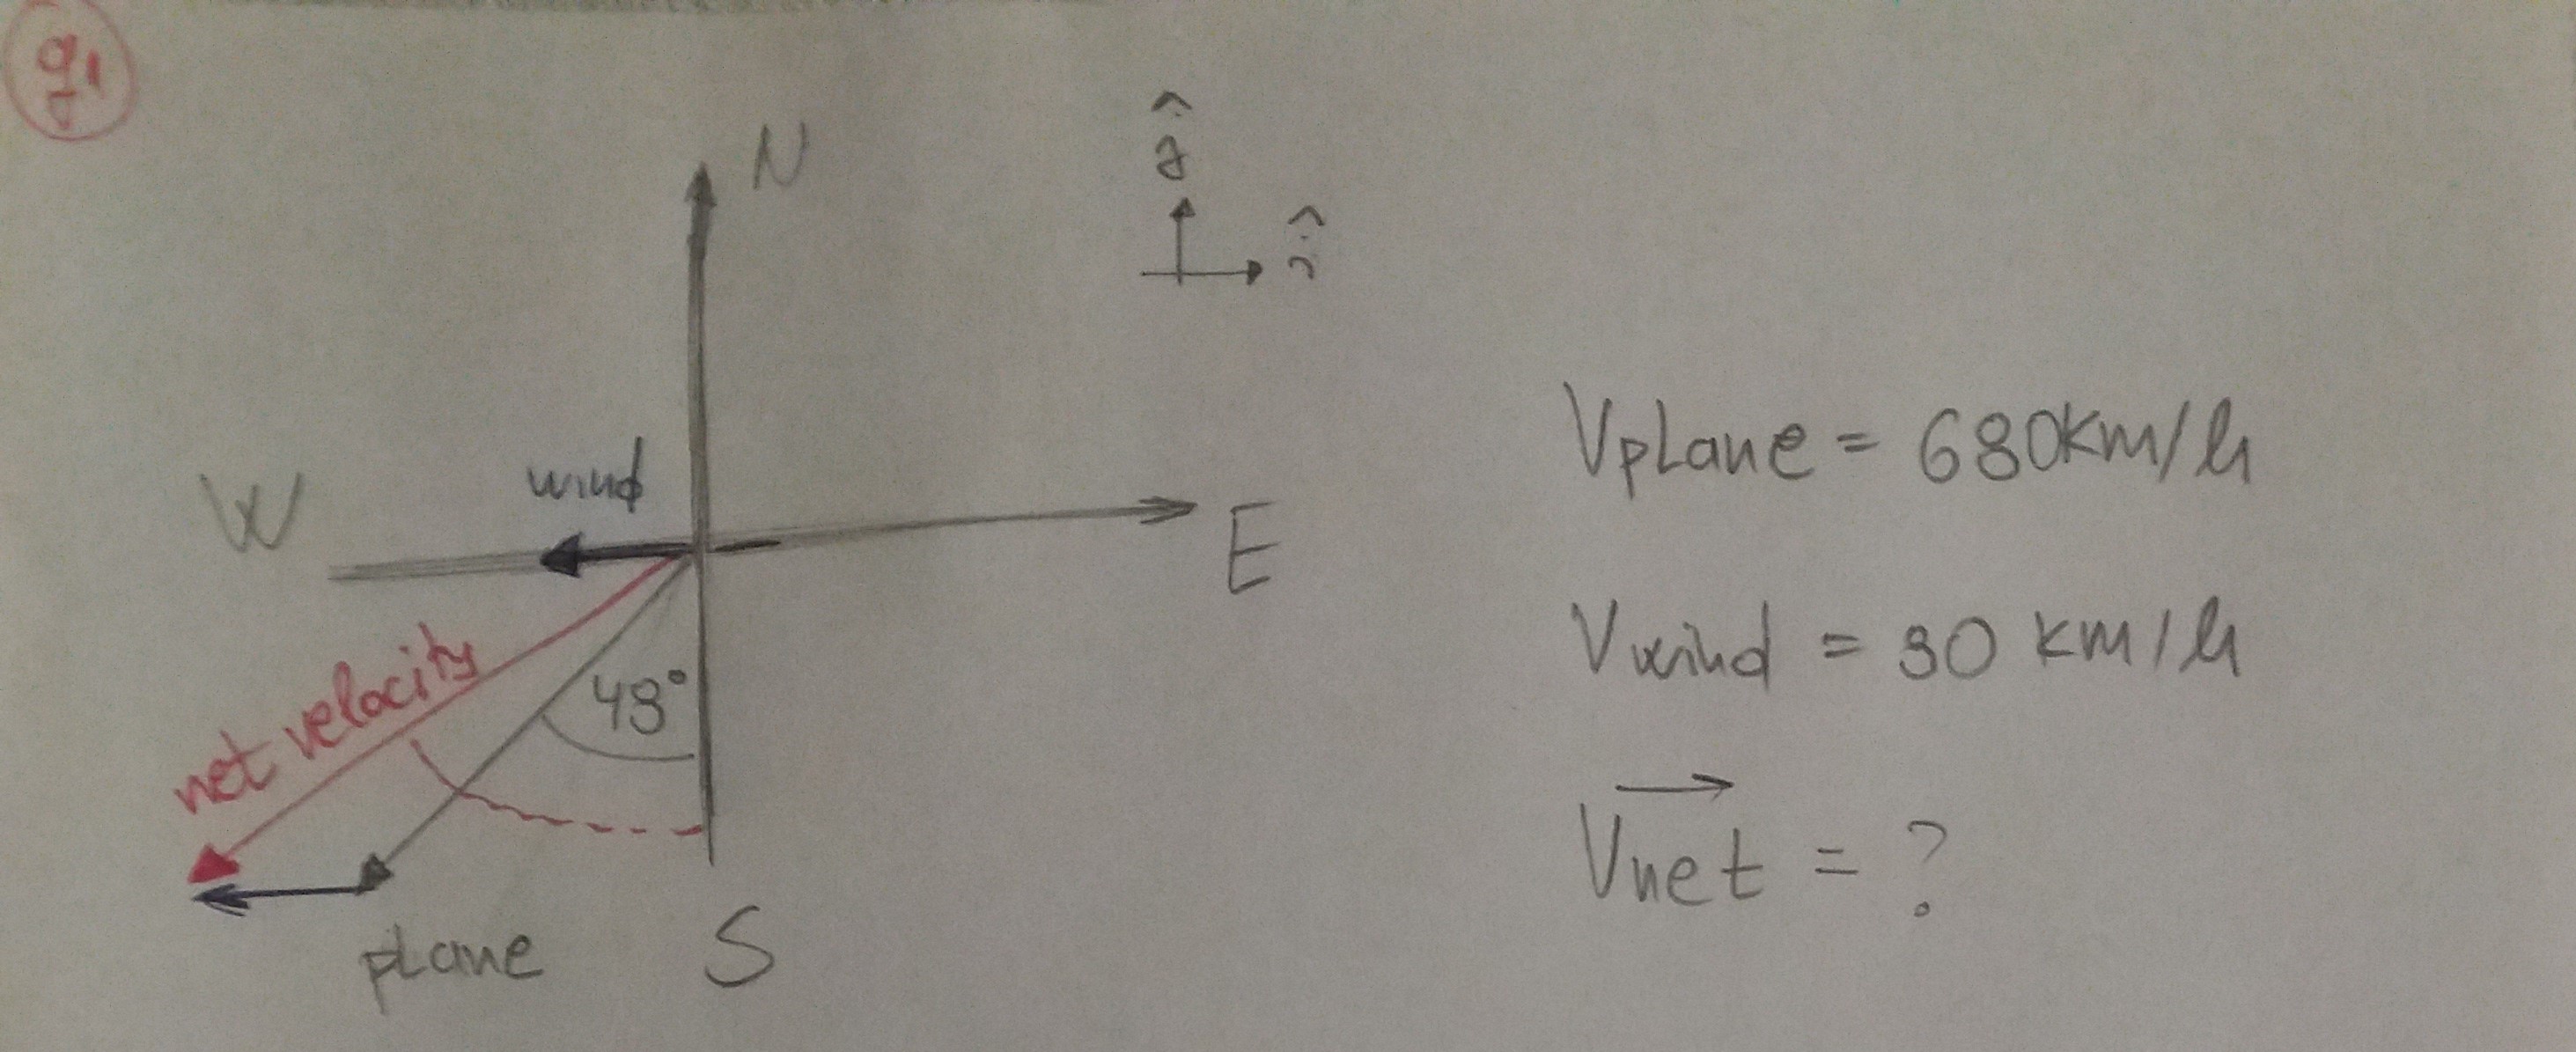 g1
N
ĵ
î
W
wind
E
net velocity
48°
plane
S
Vplane = 680km/h
Vwind = 30 km/h
Vnet = ?